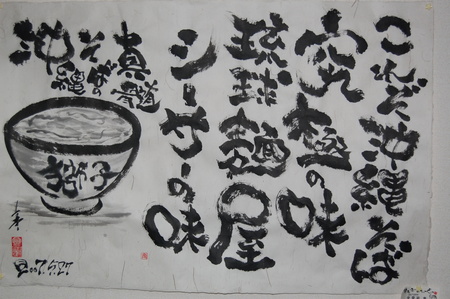 これぞ沖縄そば
究極の味
琉球麺屋
シーサーの味
真髄
そばの
沖縄の
獅子